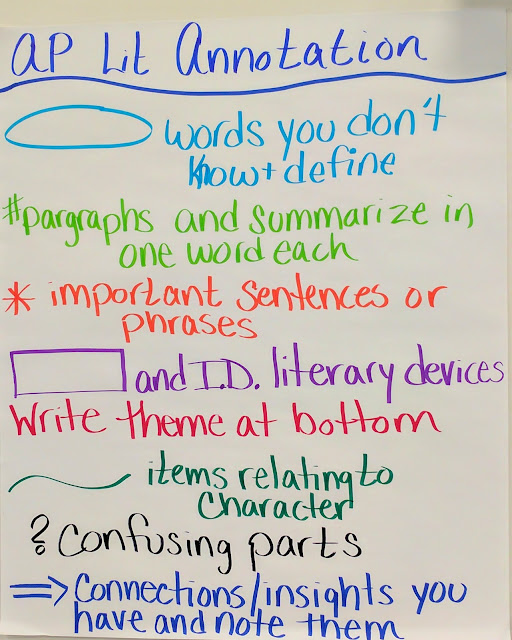 AP Lit Annotation
words you don't
know + define
#pargraphs and summarize in
one word each
* important sentences or
phrases
and I.D. literary devices
Write theme at bottom
items relating to
character
? confusing parts
=> Connections/insights you
have and note them